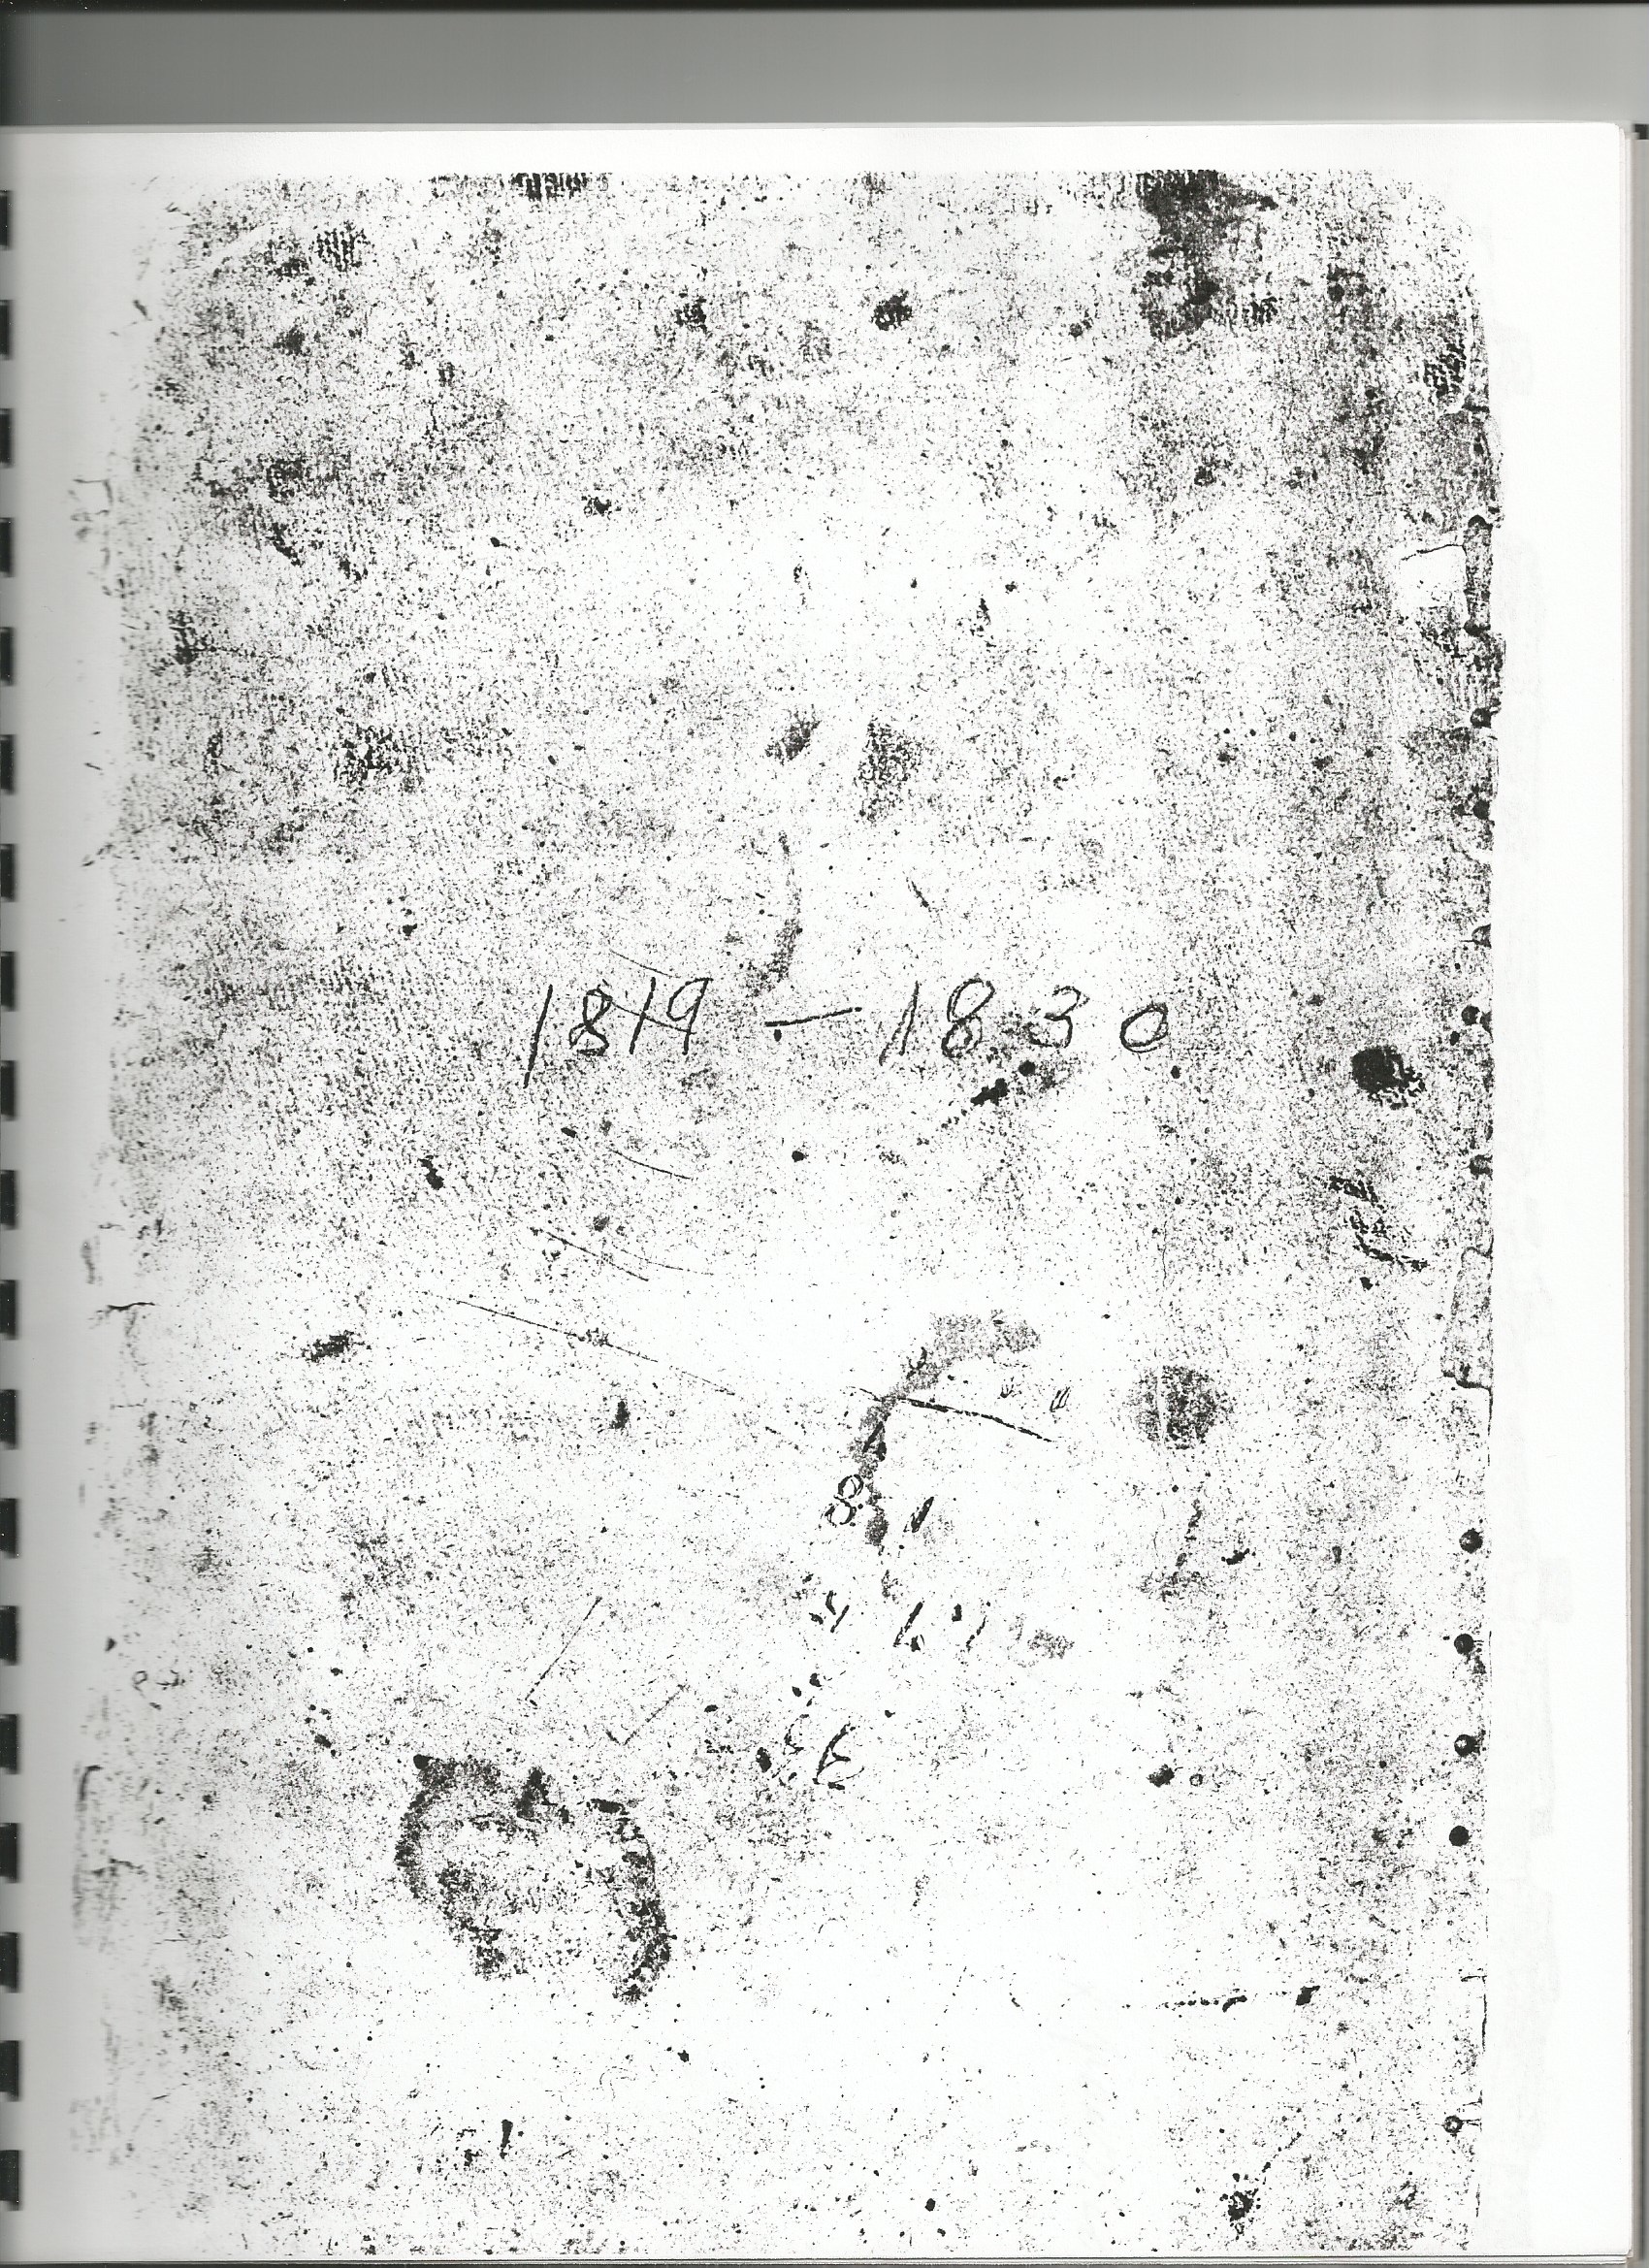 1819 — 1830